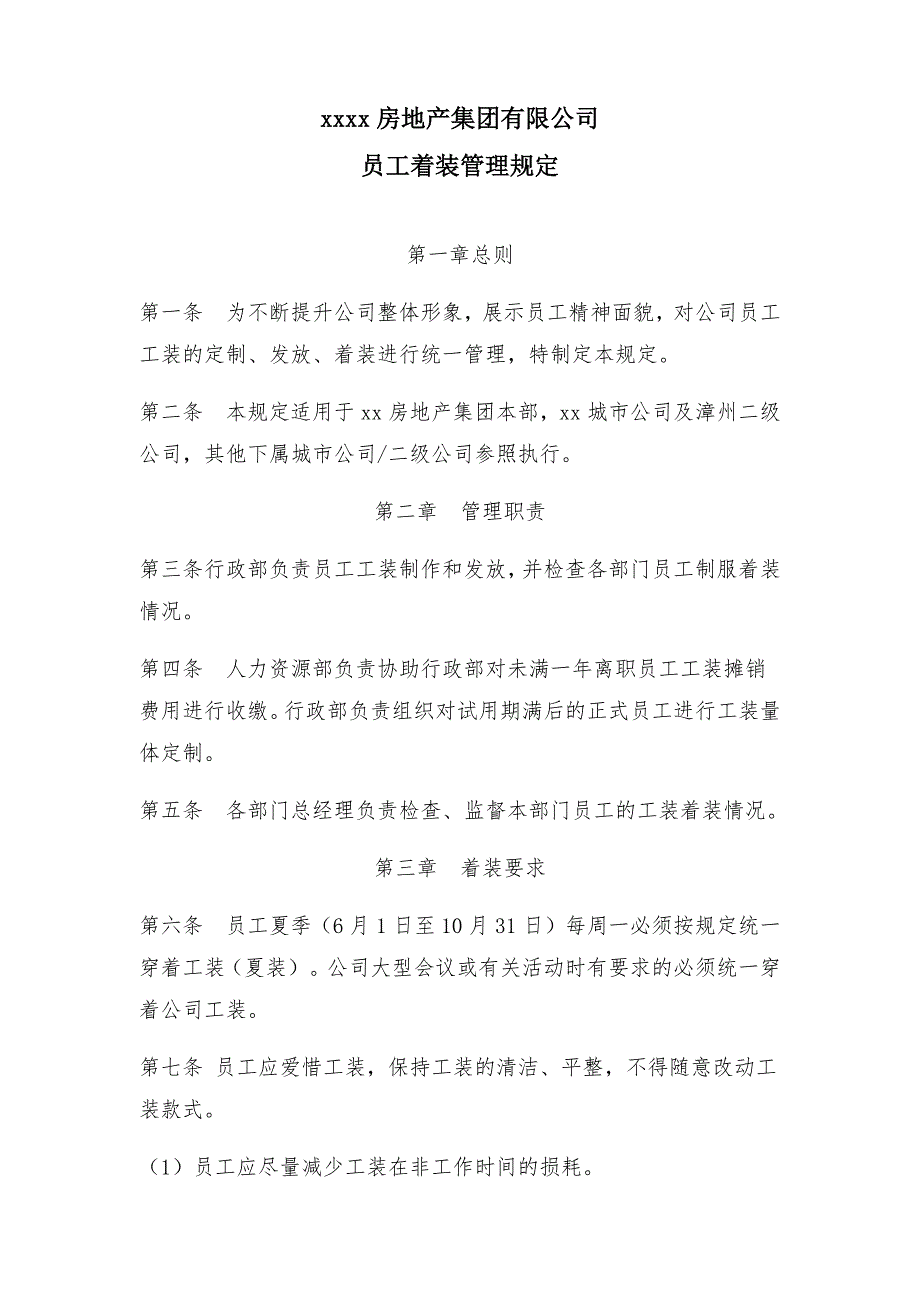 xxxx 房地产集团有限公司
员工着装管理规定
第一章总则
第一条　为不断提升公司整体形象，展示员工精神面貌，对公司员工
工装的定制、发放、着装进行统一管理，特制定本规定。
第二条　本规定适用于 xx 房地产集团本部，xx 城市公司及漳州二级
公司，其他下属城市公司/二级公司参照执行。
第二章　管理职责
第三条行政部负责员工工装制作和发放，并检查各部门员工制服着装
情况。
第四条　人力资源部负责协助行政部对未满一年离职员工工装摊销
费用进行收缴。行政部负责组织对试用期满后的正式员工进行工装量
体定制。
第五条　各部门总经理负责检查、监督本部门员工的工装着装情况。
第三章　着装要求
第六条　员工夏季（6 月 1 日至 10 月 31 日）每周一必须按规定统一
穿着工装（夏装）。公司大型会议或有关活动时有要求的必须统一穿
着公司工装。
第七条 员工应爱惜工装，保持工装的清洁、平整，不得随意改动工
装款式。
（1）员工应尽量减少工装在非工作时间的损耗。